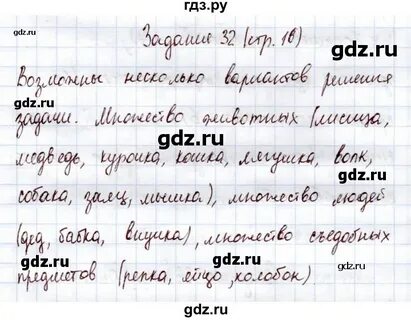 гдз.ру
Задание 32 (стр. 16)
gdz.ru
gdz.ru
Возможны несколько вариантов решения
задачи. Множество животных (лисица,
gdz.ru
gdz.ru
медведь, курочка, кошка, лягушка, волк,
собака, заяц, мышка), множество людей
gdz.ru
gdz.ru
(дед, бабка, внучка), множество съедобных
gdz.ru
gdz.ru
предметов (репка, яйцо, колобок).
gdz.ru
gdz.ru